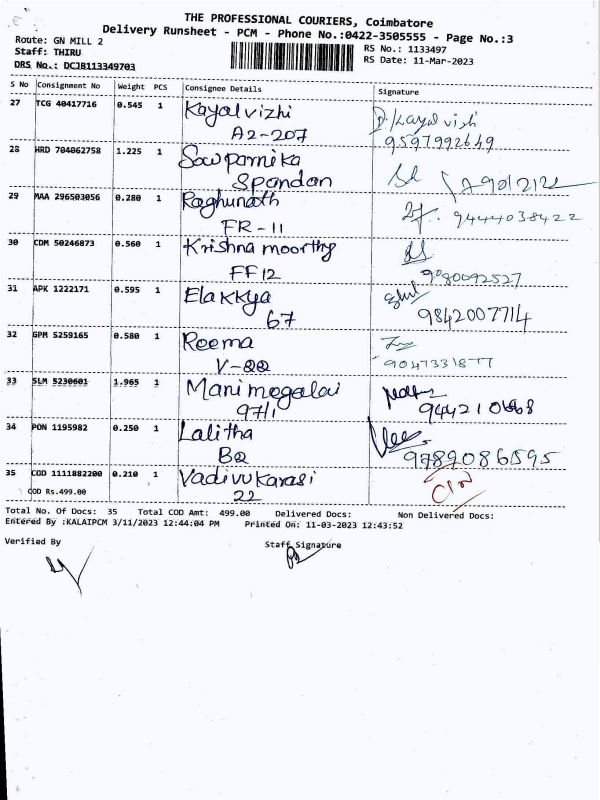 THE PROFESSIONAL COURIERS, Coimbatore
Delivery Runsheet - PCM - Phone No.:0422-3505555 - Page No.:3
Route: GN MILL 2
RS No.: 1133497
Staff: THIRU
RS Date: 11-Mar-2023
DRS No.: DCJB113349703
S No Consignment No Weight PCS Consignee Details Signature
27 TCG 40417716 0.545 1 Kayalvizhi
A2-207
9597992649
28 HRD 704062758 1.225 1 Sowparnika
Spandan
29 MAA 296503056 0.280 1 Raghunath
FR-11
9444038422
30 CDM 50246873 0.560 1 Krishna moorthy
FF12
9080092527
31 APK 1222171 0.595 1 Elakkya
67
9842007714
32 GPM 5259165 0.580 1 Reema
V-22
9047331877
33 SLM 5230601 1.965 1 Manimegalai
97/1
34 PON 1195982 0.250 1 Lalitha
B2
9789086595
35 COD 1111882200 0.210 1 Vadivukarasi
COD Rs.499.00 22
Total No. Of Docs: 35 Total COD Amt: 499.00 Delivered Docs: Non Delivered Docs:
Entered By :KALAIPCM 3/11/2023 12:44:04 PM Printed On: 11-03-2023 12:43:52
Verified By Staff Signature